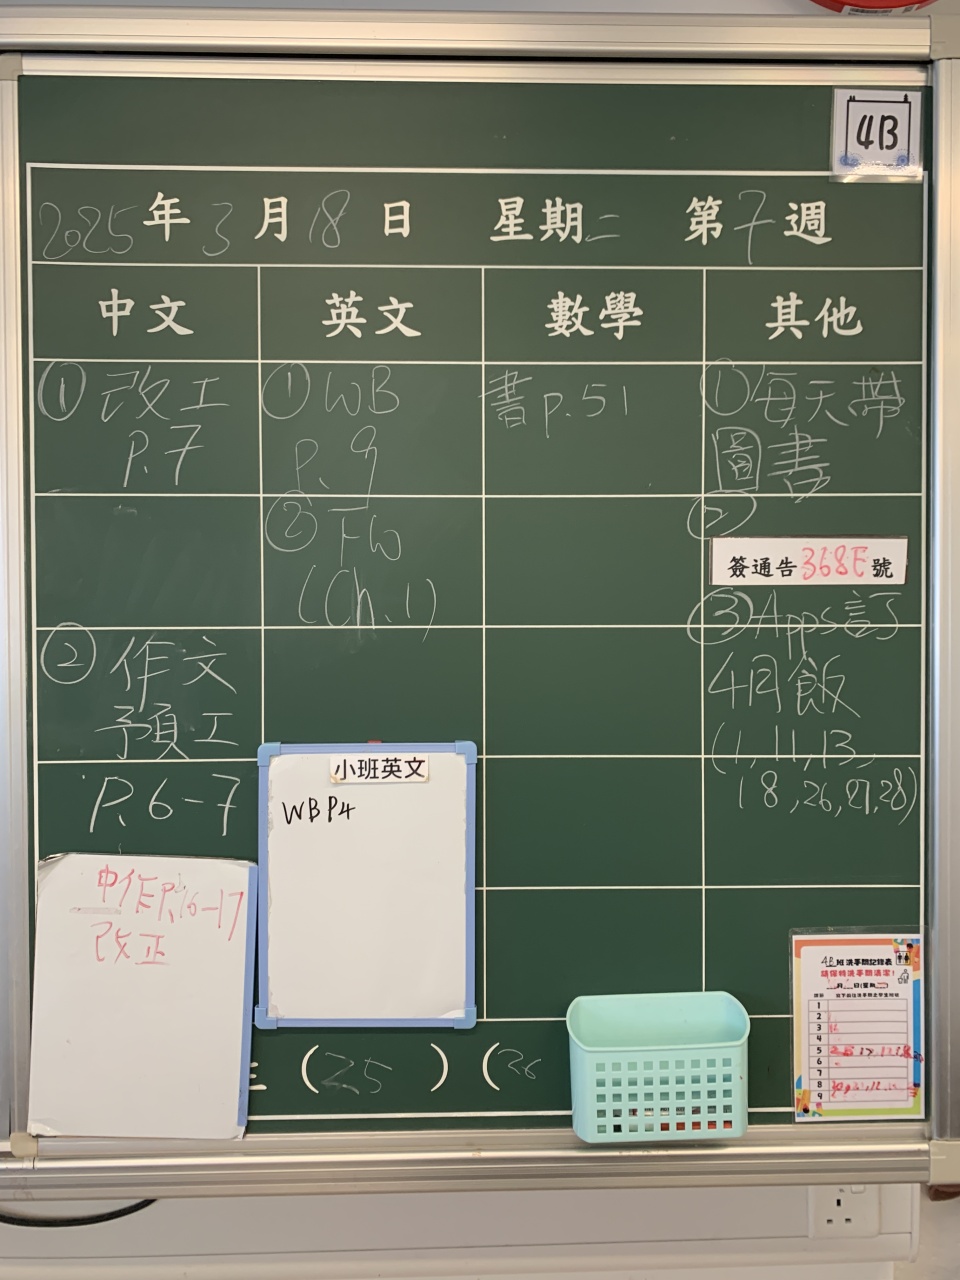 4B
2025年3月18日 星期二 第7週
中文 英文 數學 其他
①改工
P.7
②作文
預工
P.6-7
中作P.16-17
改正
①WB
P.9
②FW
(Ch.1)
小班英文
WB P4
書p.51
①每天帶
圖書
②
簽通告368E號
③Apps訂
4月飯
(1,11,13,
18,26,27,28)
(25) (26
4B班洗手間記錄表
請保持洗手間清潔!
月 日(星期 )
1
2
3
4
5
6
7
8
9